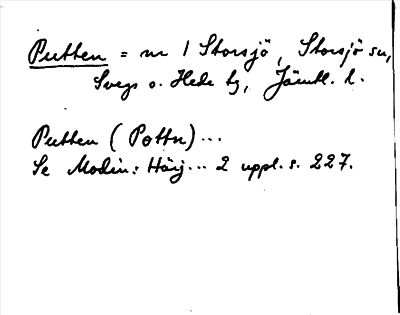 Putten = nr 1 Storsjö, Storsjö sn,
Svegs o. Hede tg, Jämtl. l.
Putten (Pottn)...
Se Modin: Härj... 2 uppl. s. 227.